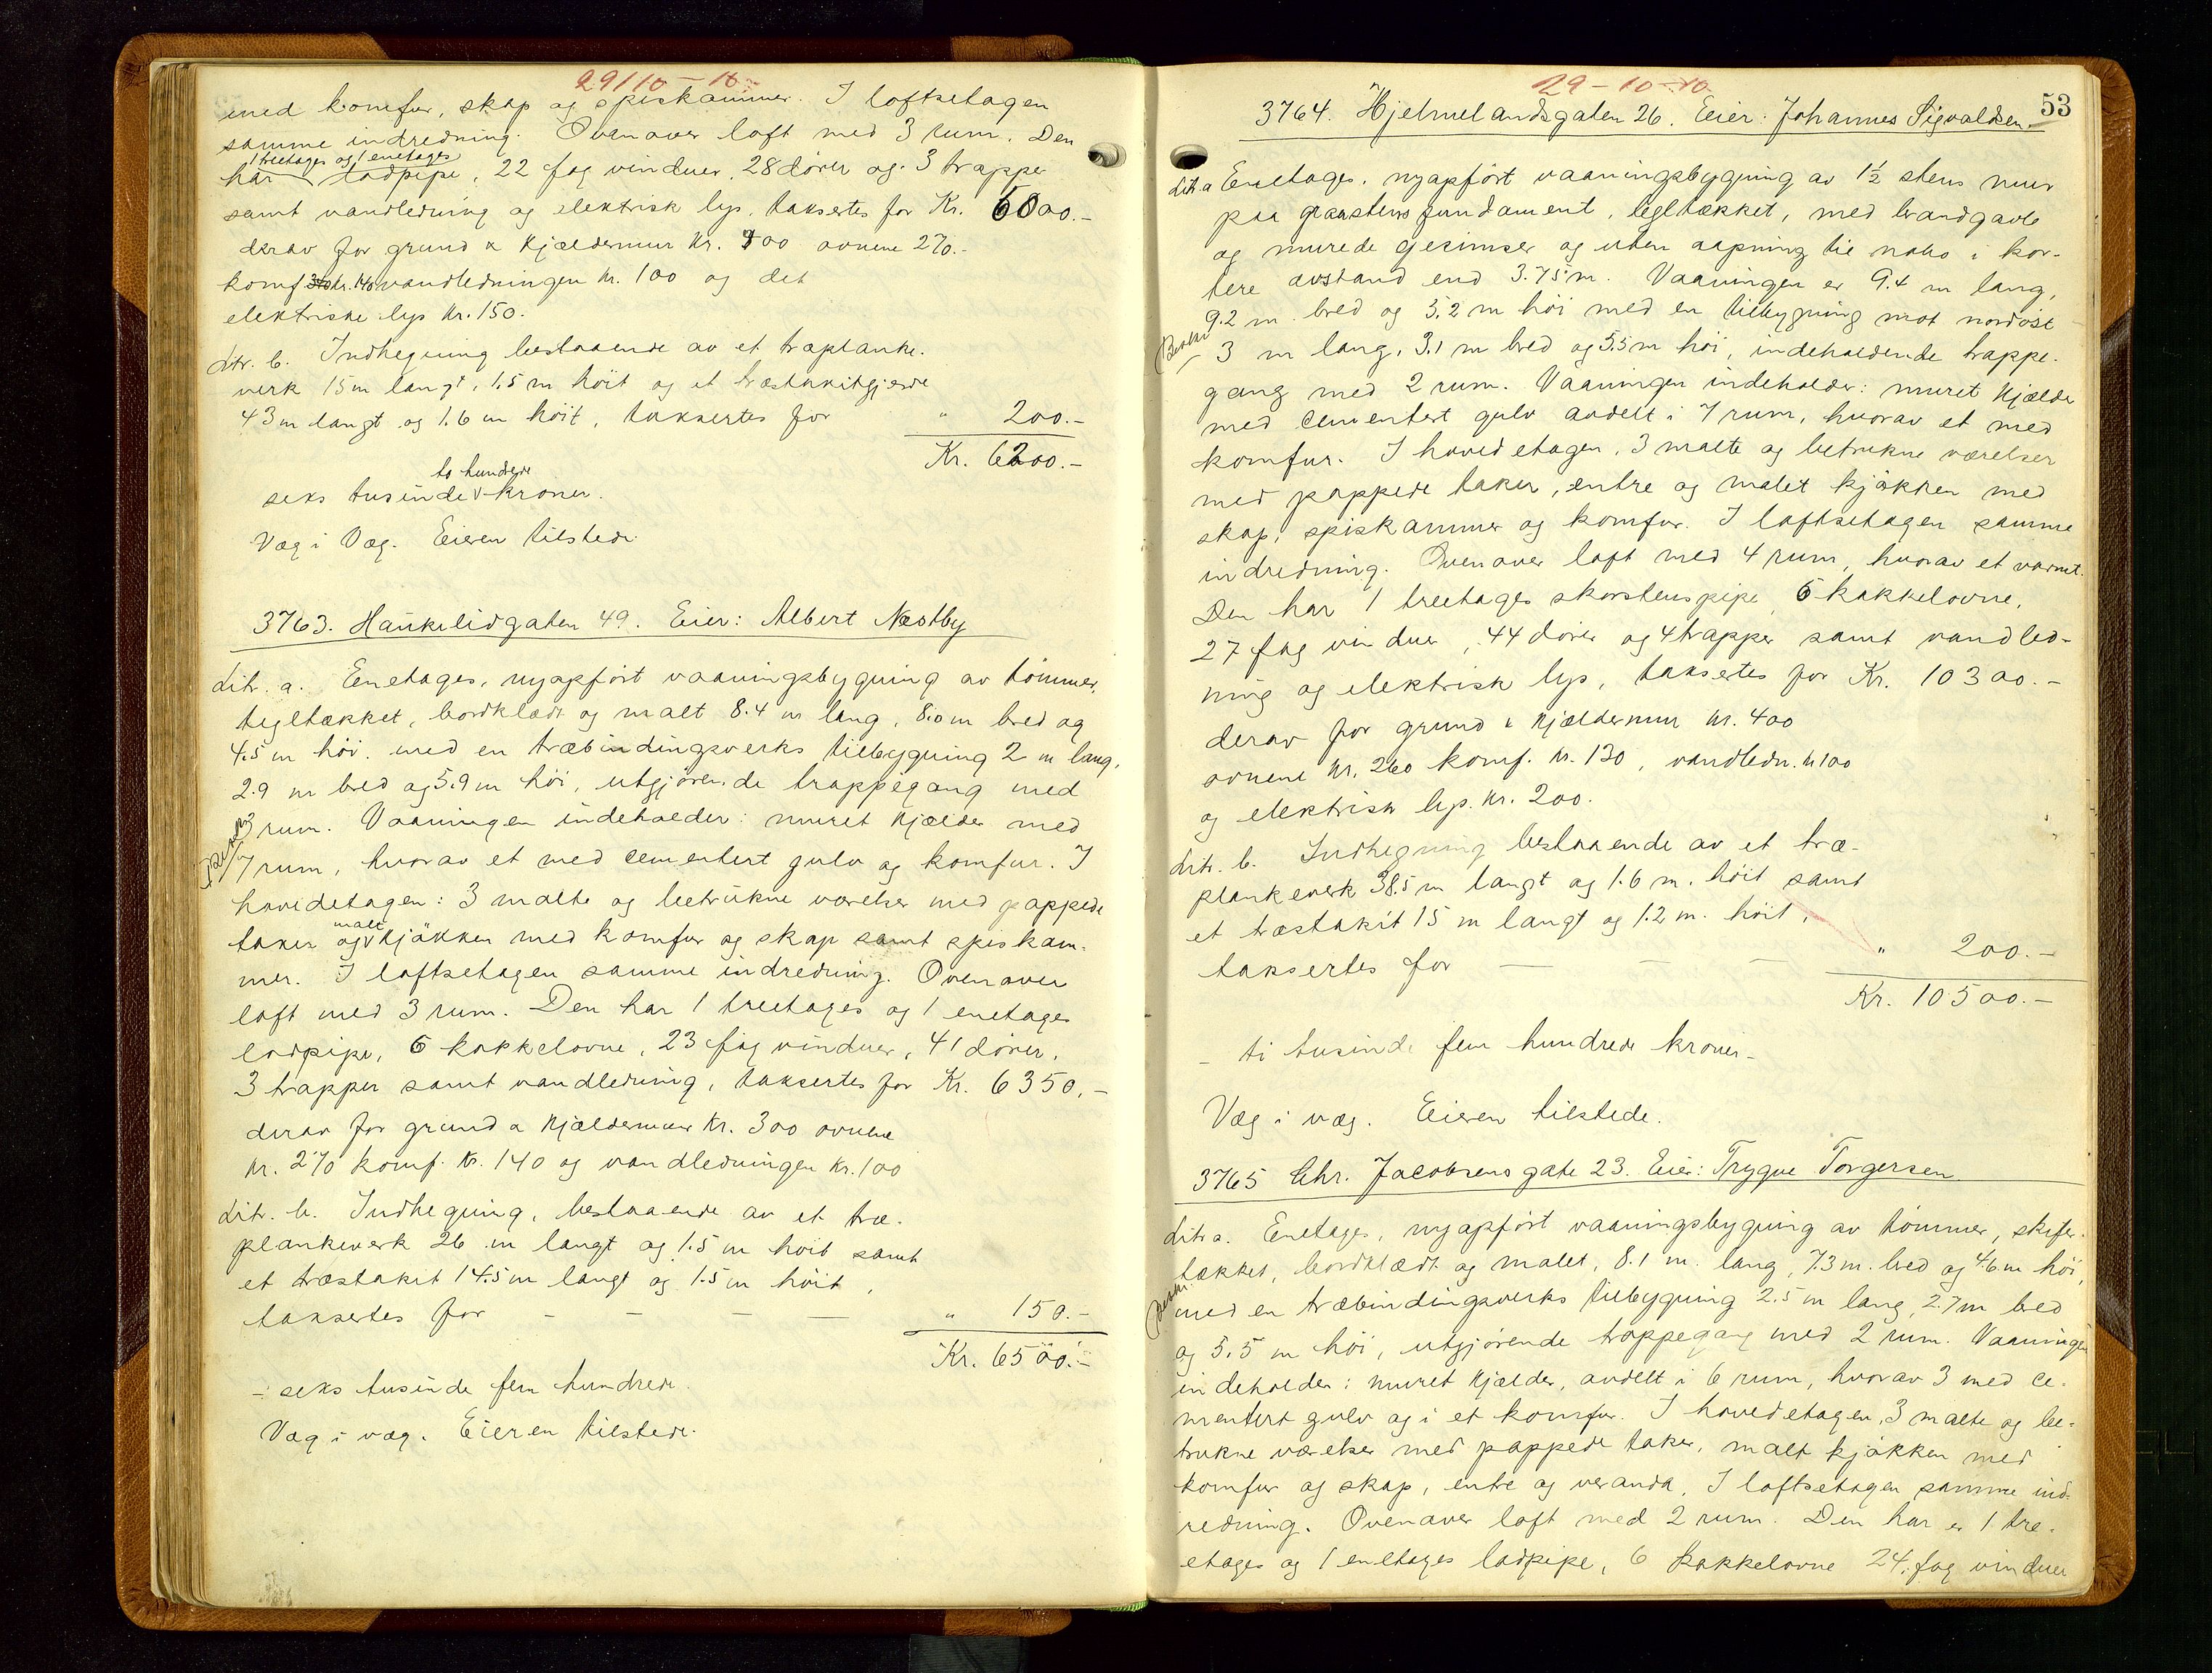 29/10-10
med komfur, skap og spiskammer. I loftsetagen
samme indredning. Ovenover loft med 3 rum. Den
1 treetages og 1 enetages
har ladpipe, 22 fag vinduer, 28 dører og 3 trapper
samt vandledning og elektrisk lys, taksertes for Kr. 6000.-
derav for grund & kjældermur Kr. 400 ovnene 270.-
komf. kr. 140 vandledningen kr. 100 og det
elektriske lys Kr. 150.
Litr. b. Indhegning bestaaende av et træplanke-
verk 15 m langt, 1.5 m høit og et træstakitgjerde
43 m langt og 1.6 m høit, taksertes for " 200.-
Kr. 6200.-
to hundrede
seks tusinde kroner.
Væg i Væg. Eieren tilstede.
3763. Haukelidgaten 49. Eier: Albert Næstby
Litr. a. Enetages, nyopført vaaningsbygning av tømmer,
tegltækket, bordklædt og malt 8.4 m lang, 8.0 m bred og
4.5 m høi. med en træbindingsverks tilbygning 2 m lang,
2.9 m bred og 5.9 m høi, utgjørende trappegang med
3 rum. Vaaningen indeholder: muret kjælder med
7 rum, hvorav et med cementert gulv og komfur. I
hovedetagen: 3 malte og betrukne værelser med pappede
malt
taker og kjøkken med komfur og skap samt spiskam-
mer. I loftsetagen samme indredning. Ovenover
loft med 3 rum. Den har 1 treetages og 1 enetages
ladpipe, 6 kakkelovne, 23 fag vinduer, 41 dører,
3 trapper samt vandledning, taksertes for Kr. 6350.-
derav for grund & kjældermur Kr. 300 ovnene
kr. 270 komf. kr. 140 og vandledningen kr. 100
Litr. b. Indhegning, bestaaende av et træ-
plankeverk 26 m langt og 1.5 m høit samt
et træstakit 14.5 m langt og 1.5 m høit,
taksertes for - - - - " 150.-
Kr. 6500.-
- seks tusinde fem hundrede.
Væg i væg. Eieren tilstede.
29-10-10
53
3764. Hjelmelandsgaten 26. Eier: Johannes Sigvaldsen.
Litr a Enetages, nyopført vaaningsbygning av 1½ stens mur
paa graastens fundament, tegltækket, med brandgavle
og murede gesimser og uten aapning til nabo i kor-
tere avstand end 3.75 m. Vaaningen er 9.4 m lang,
9.2 m bred og 5.2 m høi med en tilbygning mot nordøst
3 m lang, 3.1 m bred og 5.5 m høi, indeholdende trappe-
gang med 2 rum. Vaaningen indeholder: muret kjælder
med cementert gulv avdelt i 7 rum, hvorav et med
komfur. I hovedetagen, 3 malte og betrukne værelser
med pappede taker, entre og malet kjøkken med
skap, spiskammer og komfur. I loftsetagen samme
indredning. Ovenover loft med 4 rum, hvorav et varmt.
Den har 1 treetages skorstenspipe, 6 kakkelovne,
27 fag vinduer, 44 dører og 4 trapper samt vandled-
ning og elektrisk lys, taksertes for Kr. 10300.-
derav for grund & kjældermur kr. 400
ovnene kr. 260 komf. kr. 130, vandledn. kr 100
og elektrisk lys. kr. 200.
Litr. b. Indhegning bestaaende av et træ-
plankeverk 38.5 m langt og 1.6 m. høit samt
et træstakit 15 m langt og 1.2 m. høit,
taksertes for - - - " 200.-
Kr. 10500.-
- ti tusinde fem hundrede kroner-
Væg i væg. Eieren tilstede.
3765 Chr. Jacobsens gate 23. Eier: Trygve Torgersen
Litr a. Enetages, nyopført vaaningsbygning av tømmer, skifer-
tækket, bordklædt og malet, 8.1 m. lang, 7.3 m. bred og 4.6 m høi,
med en træbindingsverks tilbygning 2.5 m lang, 2.7 m bred
og 5.5 m høi, utgjørende trappegang med 2 rum. Vaaningen
indeholder: muret kjælder, avdelt i 6 rum, hvorav 3 med ce-
mentert gulv og i et komfur. I hovedetagen, 3 malte og be-
trukne værelser med pappede taker, malt kjøkken med
komfur og skap, entre og veranda. I loftsetagen samme ind-
redning. Ovenover loft med 2 rum. Den har 1 tre-
etages og 1 enetages ladpipe, 6 kakkelovne 24 fag vinduer